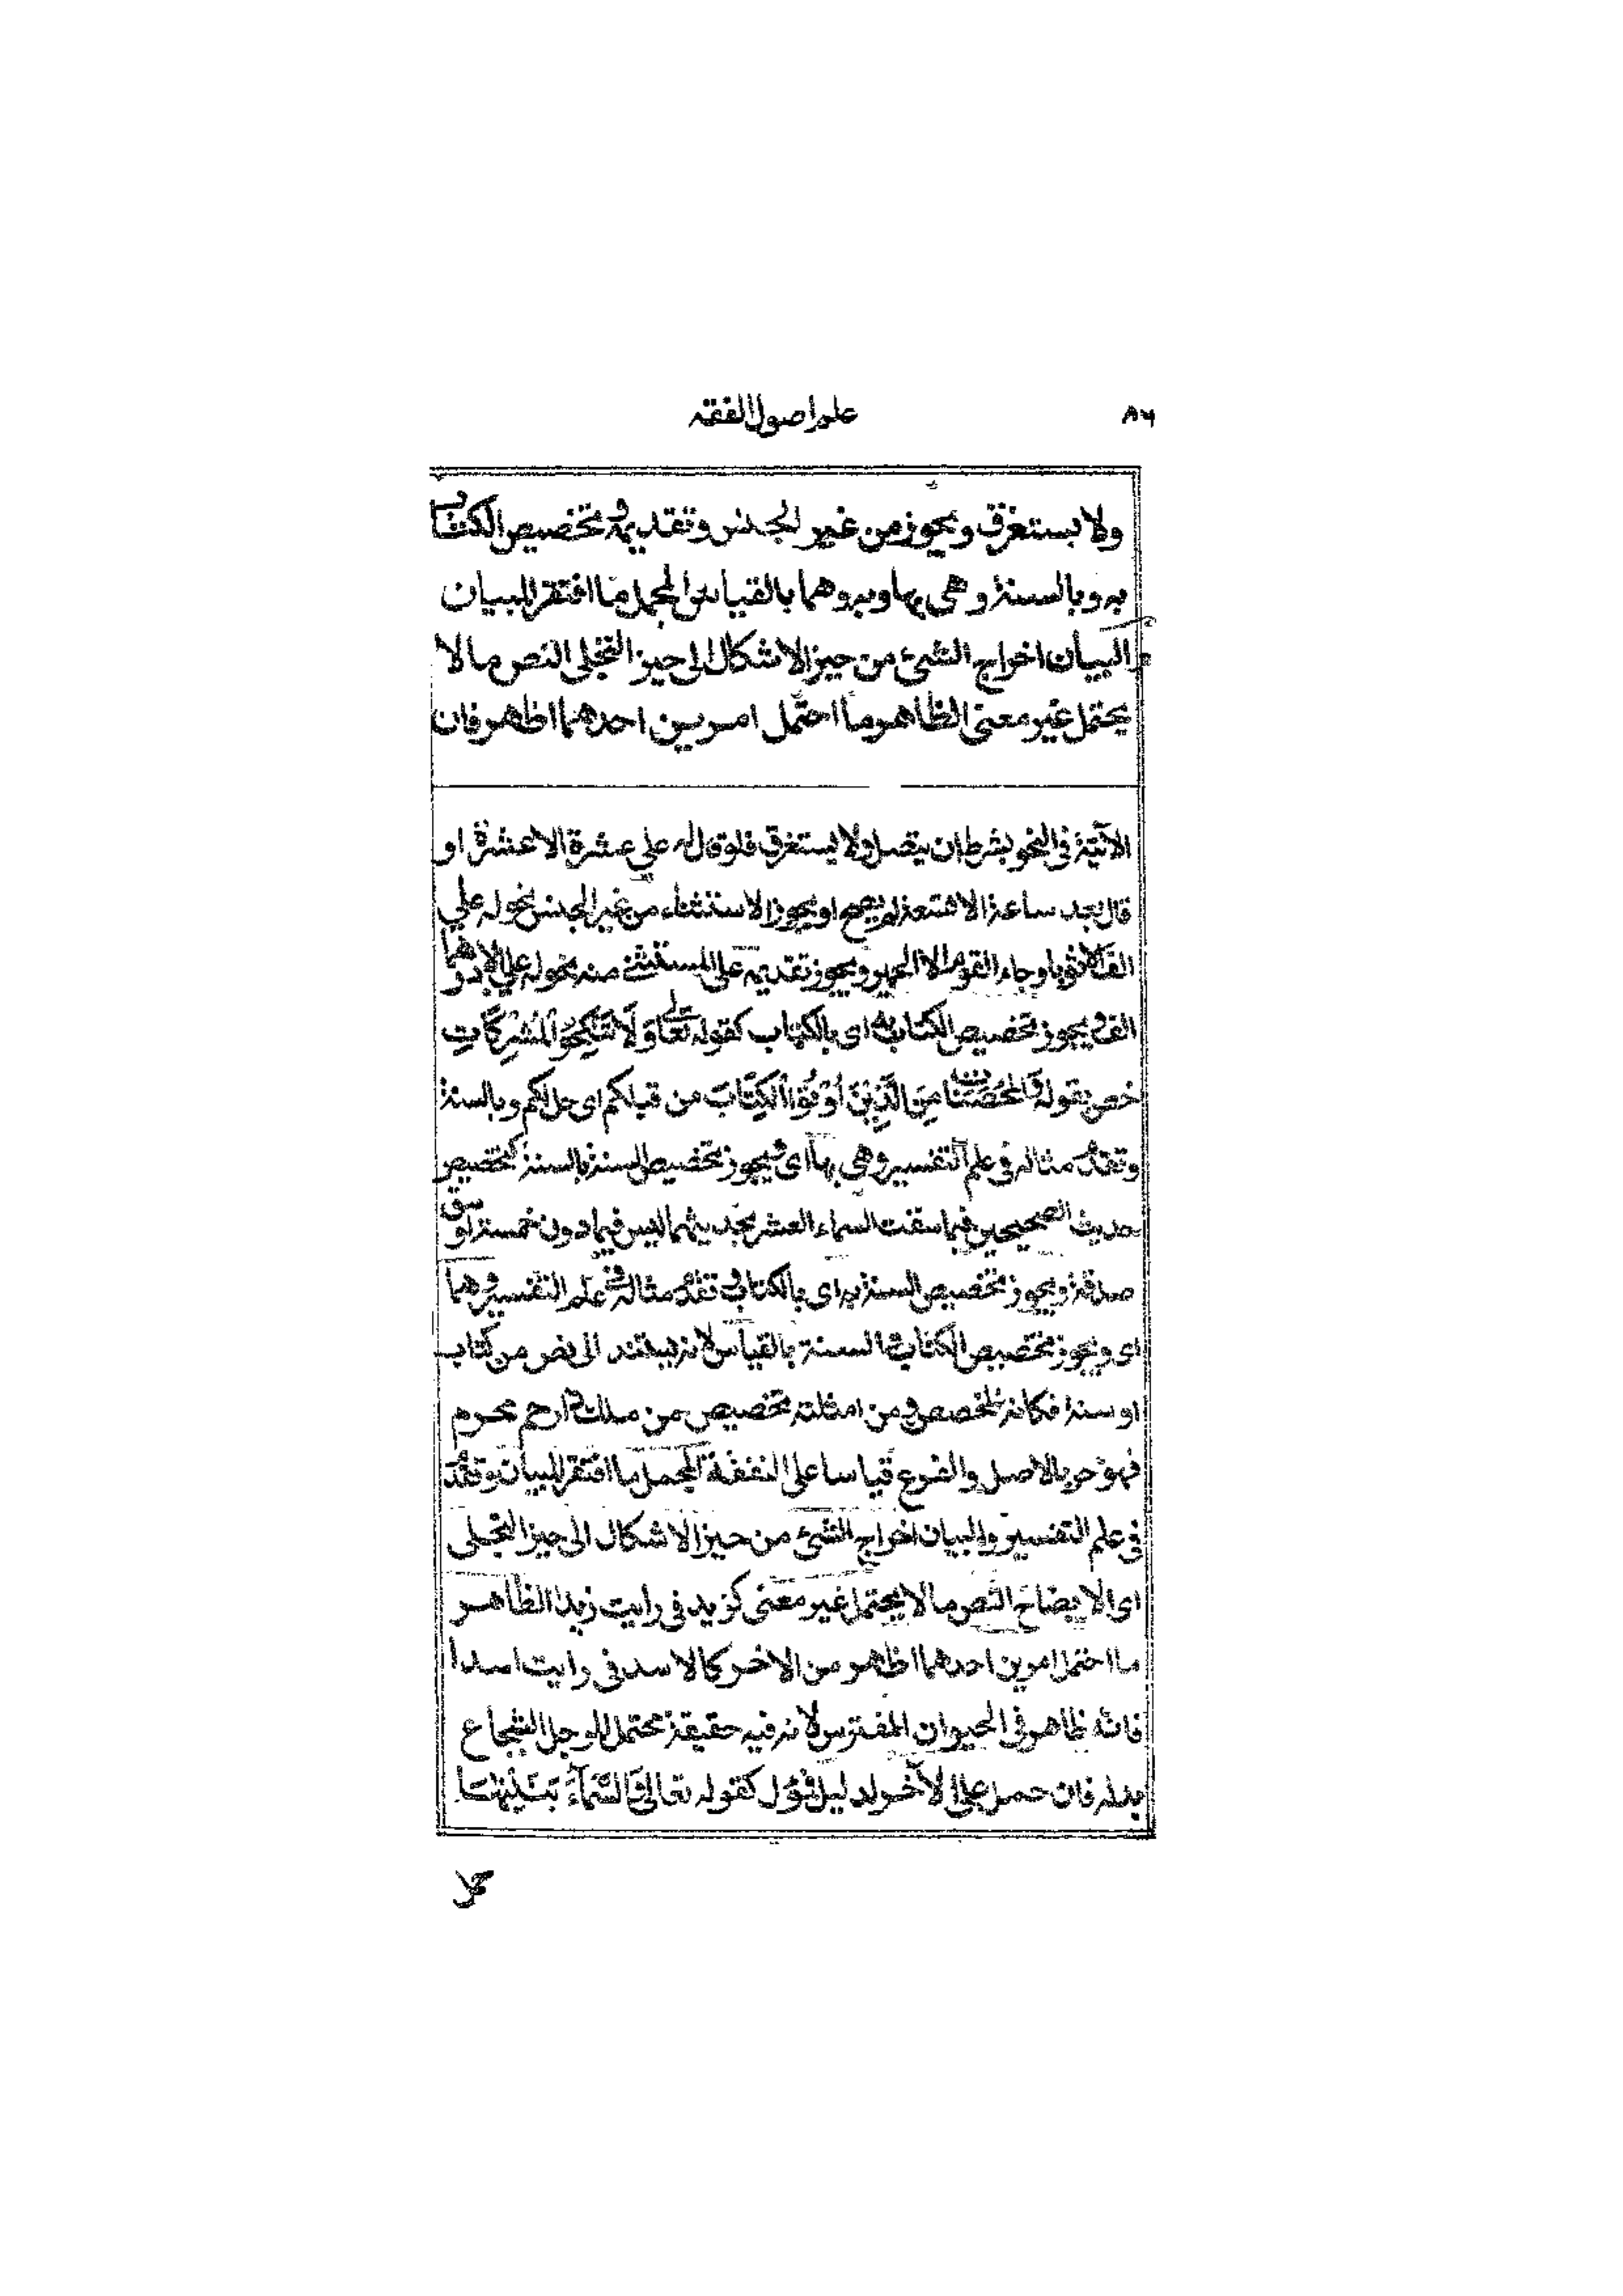 ٨٦
علم اصول الفقه
ولا يستغرق ويجوز من غير الجنس وتقديمه وتخصيص الكتاب
به وبالسنة وهى بها وبه وهما بالقياس المجمل ما افتقر للبيان
والبيان اخراج الشئ من حيز الاشكال الى حيز التجلى النص ما لا
يحتمل غير معنى الظاهر ما احتمل امرين احدهما اظهر فان
الآتية فى النحو بشرط ان يتصل ولا يستغرق فلو قال له علي عشرة الا عشرة او
قال بعد ساعة الا تسعة لم يصح ويجوز الاستثناء من غير الجنس نحو له علي
الف الا ثوبا وجاء القوم الا الحمير ويجوز تقديمه على المستثنى منه نحو له علي الا درهما
الف ويجوز تخصيص الكتاب به اى بالكتاب كقوله تعالى وَلَا تَنْكِحُوا الْمُشْرِكَاتِ
خص بقوله وَالْمُحْصَنَاتُ مِنَ الَّذِيْنَ اُوْتُوا الْكِتَابَ من قبلكم اى حل لكم وبالسنة
وتقدم مثاله فى علم التفسير وهى بها اى ويجوز تخصيص السنة بالسنة كتخصيص
حديث الصحيحين فيما سقت السماء العشر بحديثهما ليس فيما دون خمسة اوسق
صدقة ويجوز تخصيص السنة به اى بالكتاب وتقدم مثاله فى علم التفسير وهما
اى ويجوز تخصيص الكتاب والسنة بالقياس لانه يستند الى نص من كتاب
او سنة فكانه المخصص ومن امثلته تخصيص من ملك ذا رحم محرم
فهو حر بالاصل والفرع قياسا على النفقة المجمل ما افتقر للبيان وتقدم
فى علم التفسير والبيان اخراج الشئ من حيز الاشكال الى حيز التجلى
اى الايضاح النص ما لا يحتمل غير معنى كزيد فى رايت زيدا الظاهر
ما احتمل امرين احدهما اظهر من الاخر كالاسد فى رايت اسدا
فانه ظاهر فى الحيوان المفترس لانه فيه حقيقة محتمل للرجل الشجاع
بدله فان حمل على الآخر لدليل فمؤل كقوله تعالى وَالسَّمَآءَ بَنَيْنٰهَا